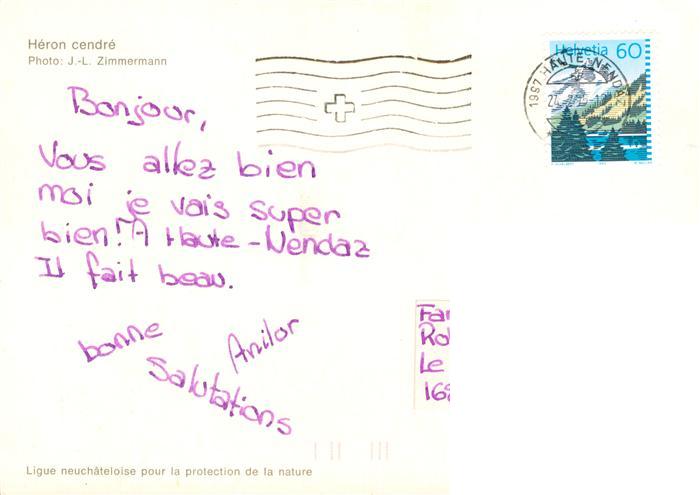 Héron cendré
Photo: J.-L. Zimmermann
Helvetia 60
1997 HAUTE-NENDAZ
Bonjour,
Vous allez bien
moi je vais super
bien! A Haute-Nendaz
Il fait beau.
bonne
Salutations
Anilor
Fa
Ro
Le
168
Ligue neuchâteloise pour la protection de la nature